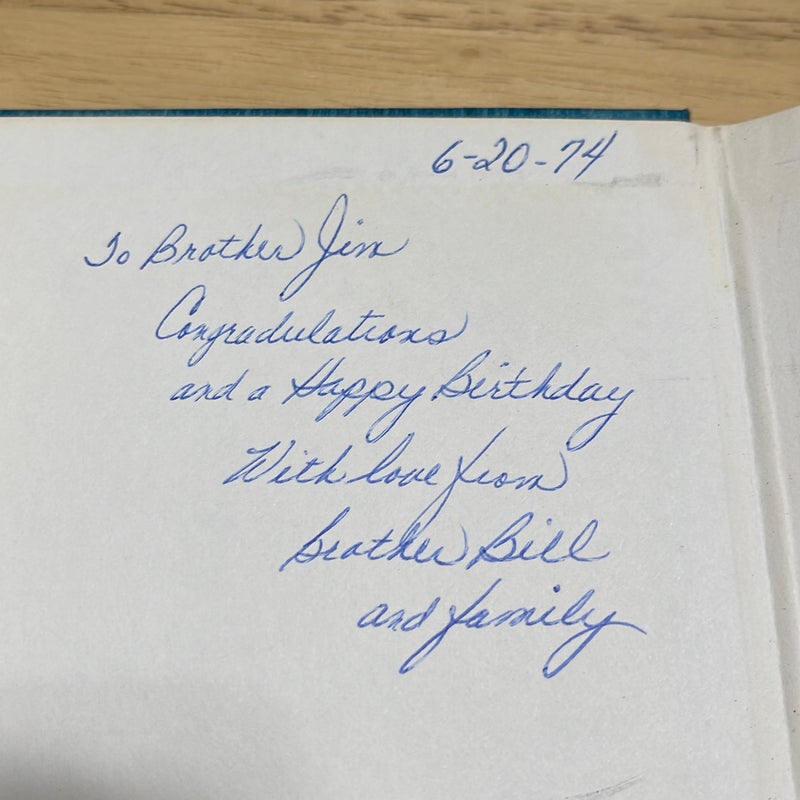 6-20-74
To Brother Jim
Congradulations
and a Happy Birthday
With love from
Brother Bill
and family